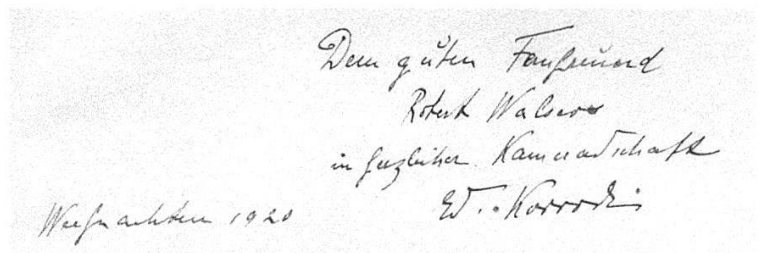 Dem guten
Robert Walsers
in herzlicher Kameradschaft
Ed. Korrodi
Weihnachten 1920